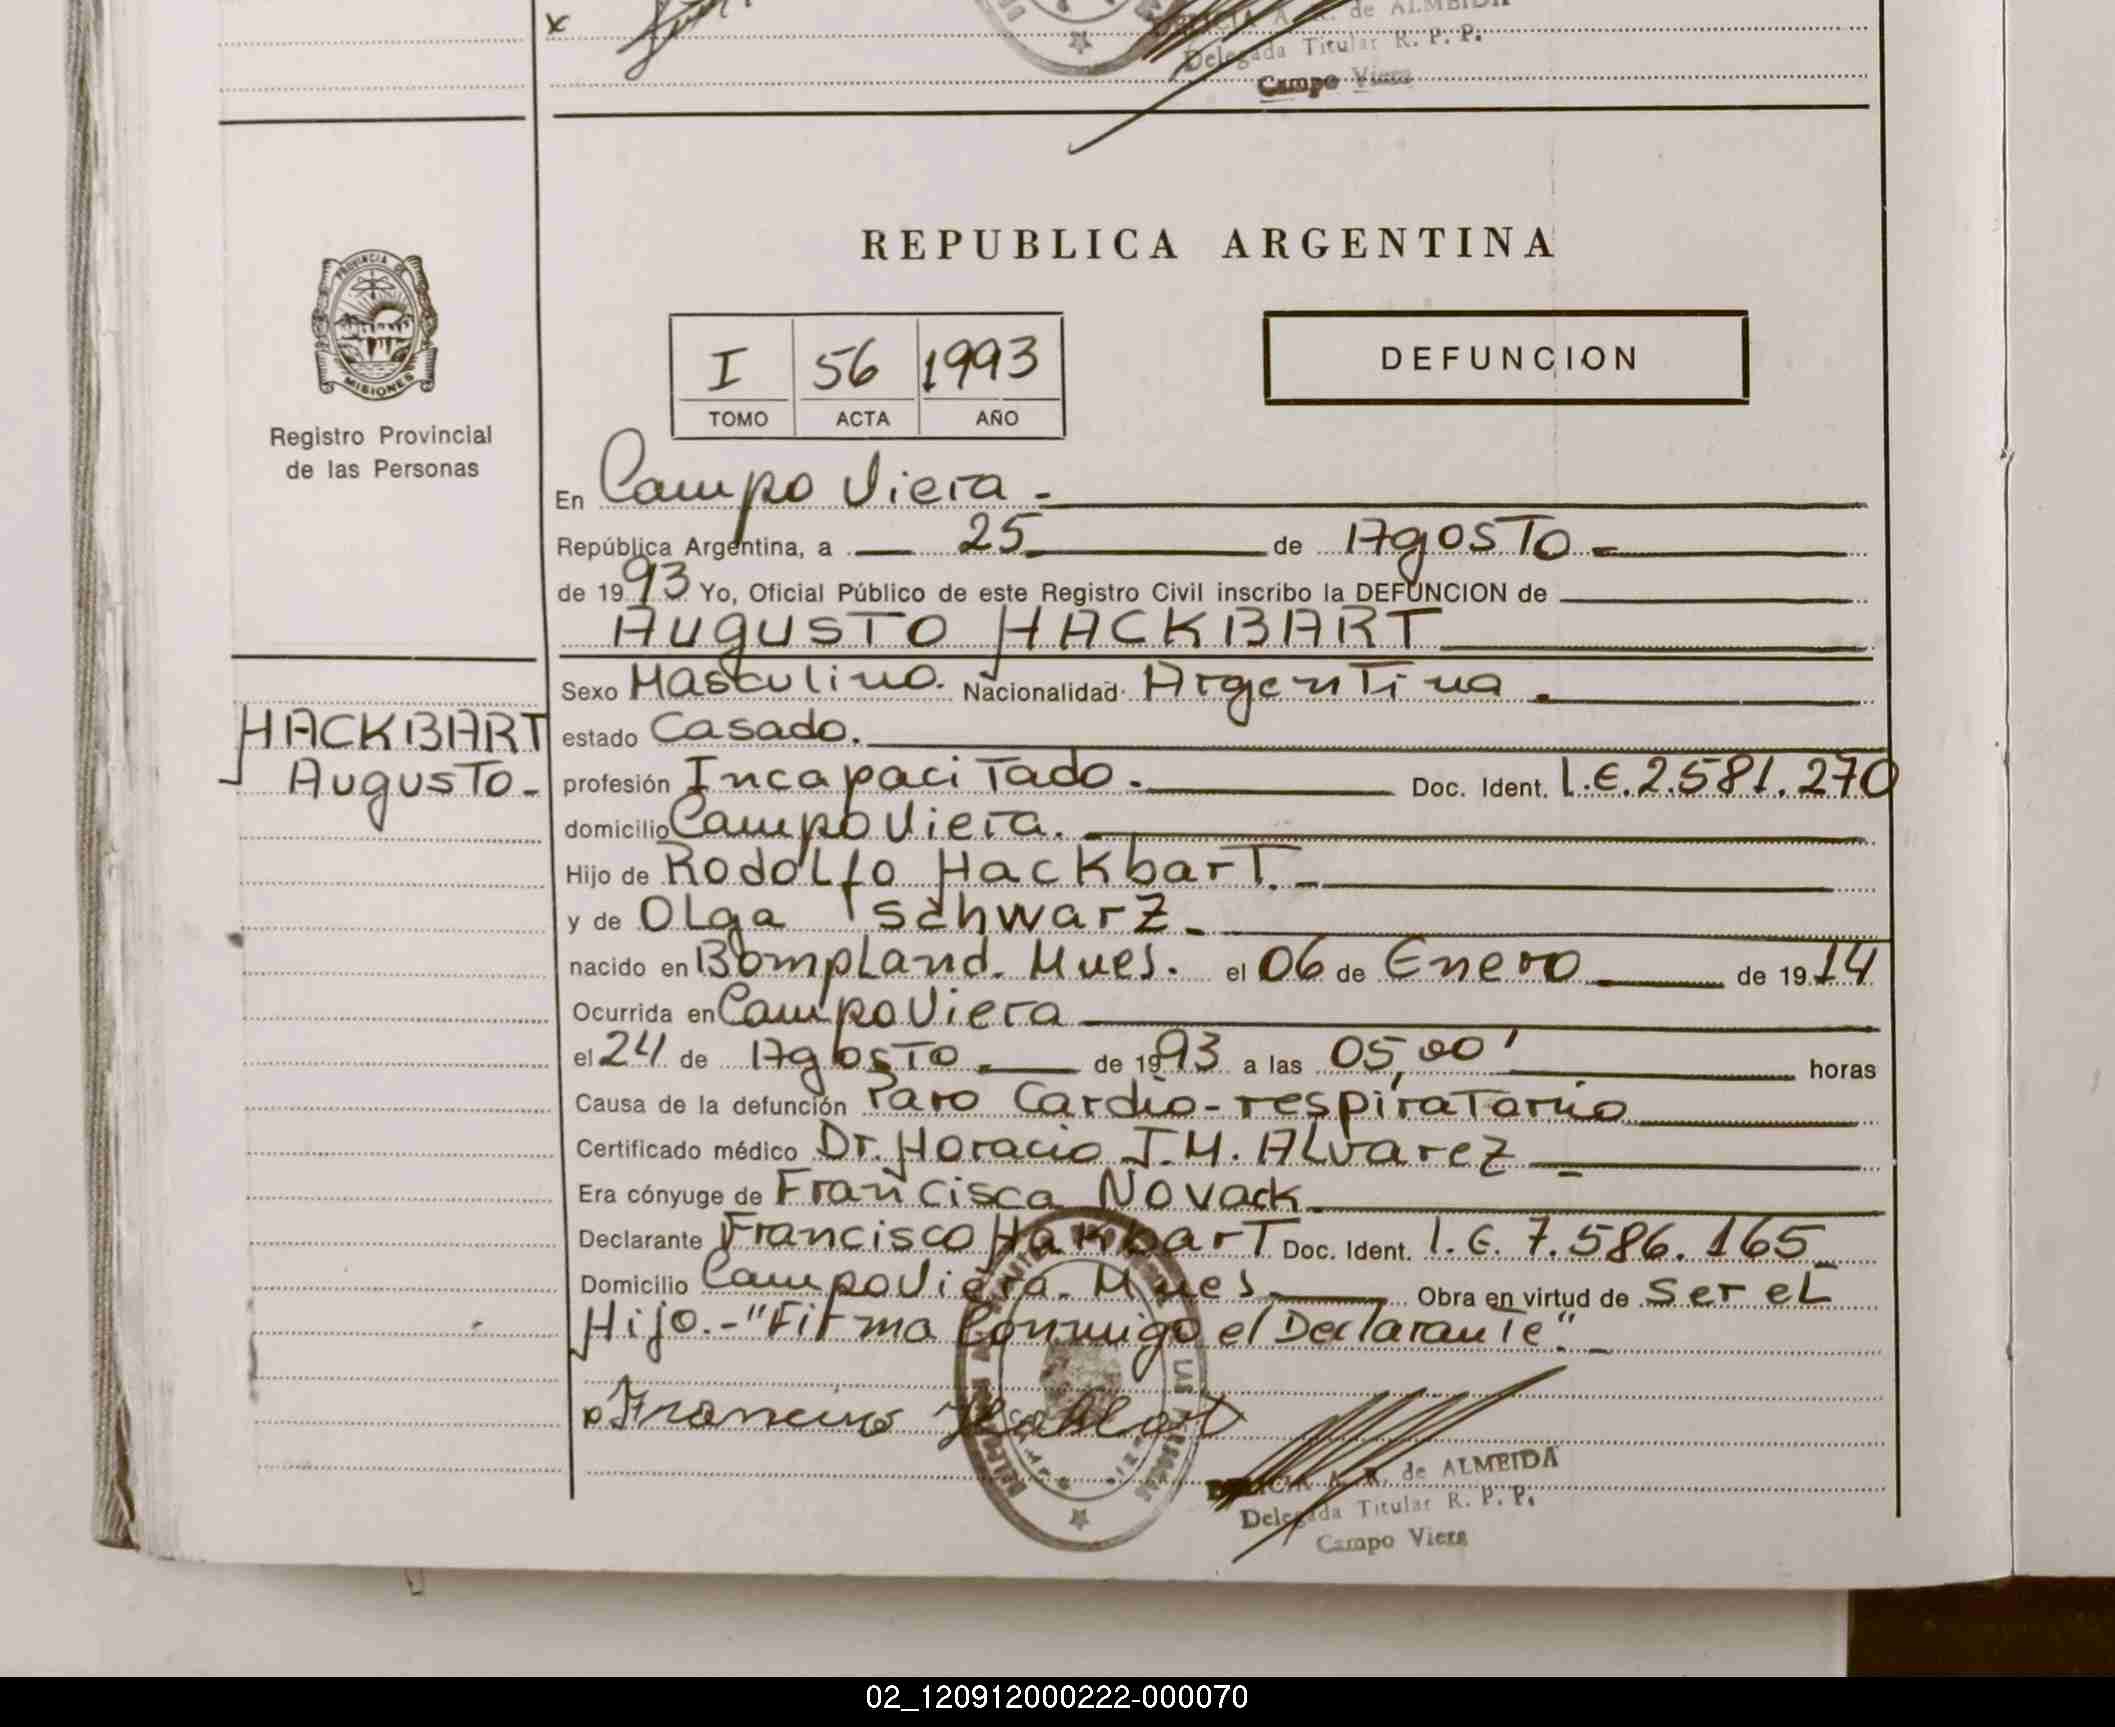 x
DELICIA A. R. de ALMEIDA
Delegada Titular R. P. P.
Campo Viera
REPUBLICA ARGENTINA
PROVINCIA DE
MISIONES
Registro Provincial
de las Personas
I 56 1993
TOMO ACTA AÑO
DEFUNCION
En Campo Viera -
República Argentina, a 25 de Agosto -
de 1993 Yo, Oficial Público de este Registro Civil inscribo la DEFUNCION de
AUgUSTO HACKBART
HACKBART
AugusTo -
Sexo Masculino. Nacionalidad Argentina.
estado Casado.
profesión Incapacitado. Doc. Ident. l.E. 2.581.270
domicilio Campo Viera.
Hijo de Rodolfo Hackbart. -
y de Olga Schwarz -
nacido en Bompland. Mnes. el 06 de Enero de 1914
Ocurrida en Campo Viera
el 24 de Agosto de 1993 a las 05,00' horas
Causa de la defunción Paro Cardio-respiratorio
Certificado médico Dr. Horacio J.M. Alvarez
Era cónyuge de Francisca Novack
Declarante Francisco Hakbart Doc. Ident. l.E. 7.586.165
Domicilio Campo Viera. Mnes Obra en virtud de ser el
Hijo.- "Firma Conmigo el Declarante". -
DELICIA A. R. de ALMEIDA
Delegada Titular R. P. P.
Campo Viera
02_120912000222-000070